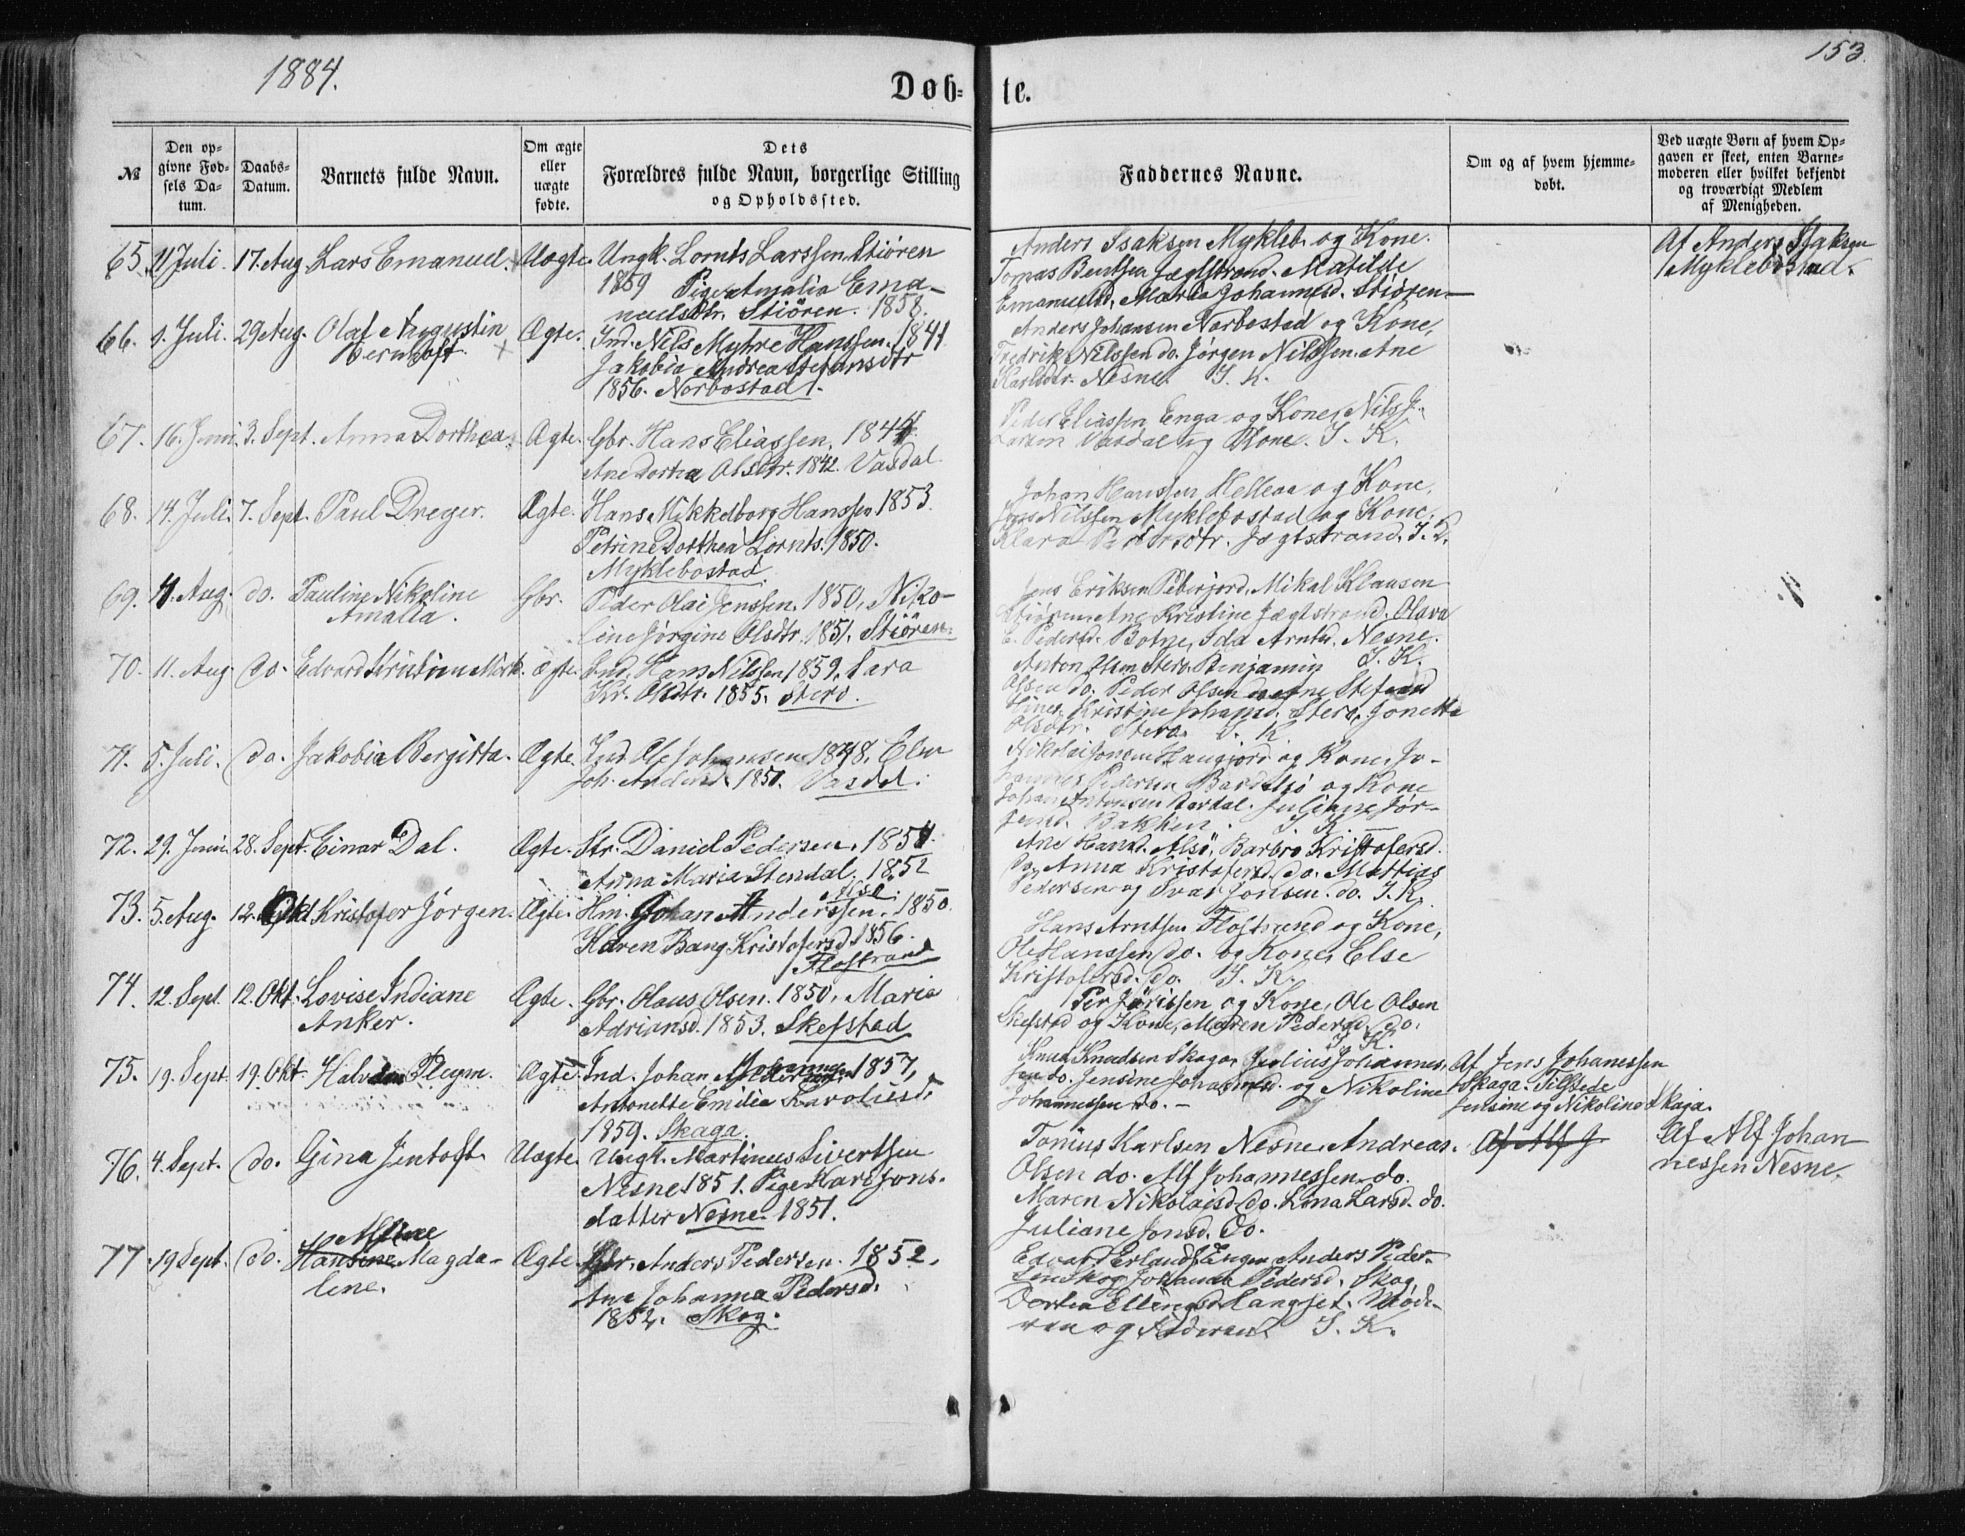 1884.
153.
Døb-
te.
№
Den op-
givne Fød-
sels Da-
tum.
Daabs-
Datum.
Barnets fulde Navn.
Om ægte
eller
uægte
fødte.
Dets
Forældres fulde Navn, borgerlige Stilling
og Opholdssted.
Faddernes Navne.
Om og af hvem hjemme-
døbt.
Ved uægte Børn af hvem Op-
gaven er skeet, enten Barne-
moderen eller hvilket bekjendt
og troværdigt Medlem
af Menigheden.
65. 11 Juli. 17. Aug. Lars Emanuel. Uægte. Ungk. Lornts Larssen Stiören
1859 Pige Amalia Ema-
nuelsdtr. Stiören. 1858.
Anders Isaksen Mykleb. og Kone.
Tomas Bentsen Jægtstrand. Matilde
Emanuelsd. Maria Johannesd. Stiören
Af Anders Isaksen
Myklebostad.
66. 9. Juli. 29 Aug. Olaf Augustin
Bernhoft. Ægte. Ind. Nils Myhre Hanssen. 1841
Jakobia Andrea Stefansdtr
1856. Norbostad.
Anders Johansen Norbostad og Kone,
Fredrik Nilssen do. Jørgen Nilssen. Ane
Karlsdtr. Nesne. I. K.
67. 16. Juni. 3. Sept. Anna Dorthea. Ægte. Gbr. Hans Eliassen. 1844.
Ane Dortea Olsdtr. 1842. Vasdal.
Peder Eliassen Enga og Kone, Nils J.
Vasdal og Kone. I. K.
68. 14. Juli. 7. Sept. Paul Dreyer. Ægte. Hans Mikkelborg Hanssen 1853.
Petrine Dorthea Lornts. 1850.
Myklebostad.
Johan Hanssen Helleaa og Kone,
Jens Nilssen Myklebostad og Kone.
Klara Pedersdtr. Jægtstrand. I. K.
69. 4. Aug. do. Pauline Nikoline
Amalia. Gbr. Peder Olai Jenssen. 1850, Niko-
line Jørgine Olsdtr. 1851. Stiören.
Jens Eriksen Peberjord, Mikal Klausen
Stiören. Ane Kristine Jægtstrand. Olava
E. Pedersd. Botne, Ida Arntsd. Nesne.
I. K.
70. 11. Aug. do. Edvard Kristian Mörk. Ægte. Ind. Hans Nilssen 1859, Sara
Kr. Olsdtr. 1855. Sterö.
Anton Olsen Sterö. Benjamin
Olsen do. Peder Olsen do. Ane Stefansd
Kristine Johansd. Sterö. Jonette
Olsdtr. Sterö. I. K.
71. 5. Juli. do. Jakobia Bergitta. Ægte. Ind. Ole Johansen 1848, Elen
Joh. Andersd. 1850. Vasdal.
Nikolai Jonsen Haugjord og Kone, Jo-
hannes Pedersen Bardalsjö og Kone
Johan Antonsen Bardal. Juliane Jör-
gensd. Bakken. I. K.
72. 29. Juni. 28. Sept. Einar Dal. Ægte. Str. Daniel Pedersen. 1854.
Anna Maria Stendal. 1852
Alsö.
Ane Hansd. Alsö. Barbro Kristofersd.
do. Anna Kristofersd. do. Mattias
Pedersen og Ivar Jonsen. do. I. K.
73. 5. Aug. 12. Okt Kristofer Jörgen. Ægte. Hm. Johan Anderssen. 1850.
Karen Bang Kristofersd. 1856.
Flostrand
Hans Arntsen Flostrand og Kone,
Ole Hanssen do. og Kone, Else
Kristofersd. do. I. K.
74. 12. Sept. 12. Okt. Lovise Indiane
Anker. Ægte. Gbr. Olaus Olsen. 1850, Maria
Adriansd. 1853. Skefstad
Per Jörissen og Kone, Ole Olsen
Skefstad og Kone, Maren Pedersd. do.
I. K.
75. 19. Sept. 19. Okt. Halvdan Pleym. Ægte. Ind. Johan Johannesen 1857,
Antonette Emelie Karoliusd.
1859. Skaga.
Knut Knudsen Skaga, Julius Johannes-
sen do. Jensine Johannesd. og Nikoline
Johannessen do. –
Af Jens Johanessen
Skaga. Tilstede
Jensine og Nikoline Skaga.
76. 4. Sept. do. Gina Jentoft. Uægte. Ungk. Martinus Sivertsen
Nesne 1851. Pige Kari Jons-
datter Nesne. 1851.
Tonius Karlsen Nesne. Andreas
Olsen do. Alf Johannessen do.
Maren Nikolaisd. do. Lina Larsd. do.
Juliane Jonsd. do.
Af Alf J.
Af Alf Johan
nessen Nesne.
77. 19 Sept. do. Hansine Magda-
lene. Ægte. Gbr. Anders Pedersen. 1852.
Ane Johanna Pedersd.
1852. Skog.
Anders Peder-
sen Skog, Johanna Pedersd. Skog,
Dortea Ellingsd. Langset. Mode-
ren og Faderen. I. K.